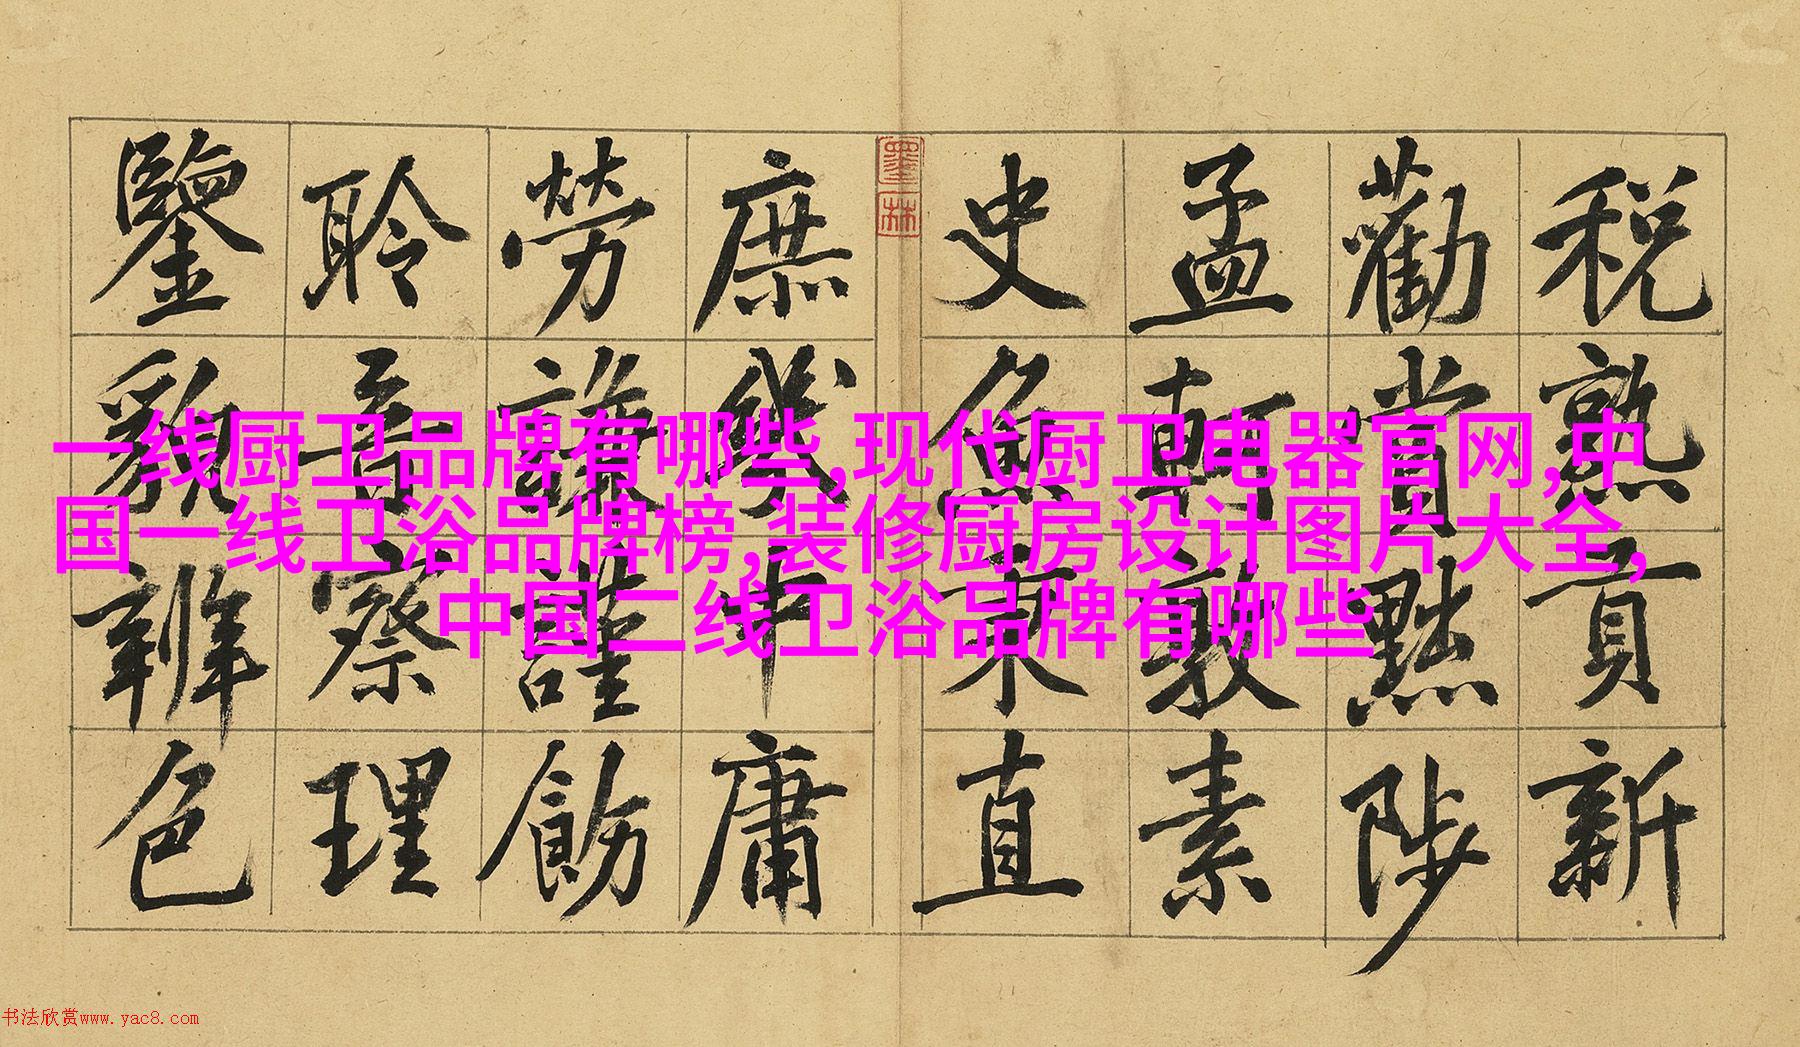 税熟貢新
勸賞黜陟
孟軻敦素
史魚秉直
庶幾中庸
勞謙謹飭
聆音察理
鑒貌辨色
墨林
一线厨卫品牌有哪些,现代厨卫电器官网,中
国一线卫浴品牌榜,装修厨房设计图片大全,
中国二线卫浴品牌有哪些
书法欣赏www.yac8.com